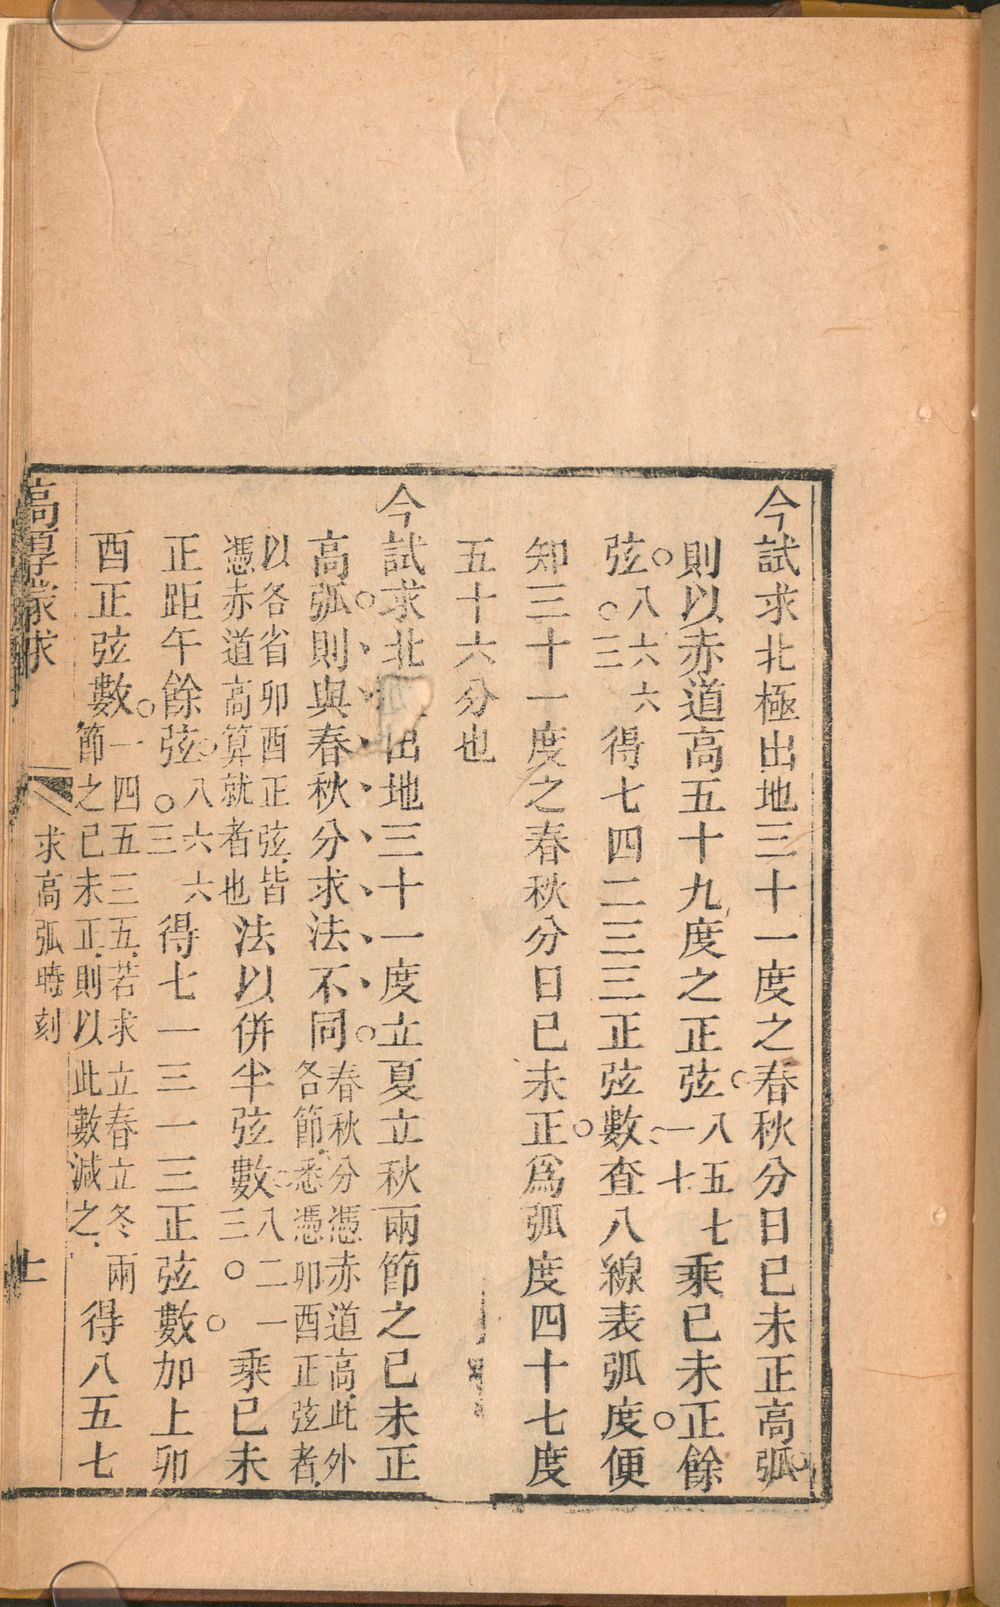 今試求北極出地三十一度之春秋分日已未正高弧
則以赤道高五十九度之正弦八五七一七乘已未正餘
弦八六六〇三得七四二三三正弦數查八線表弧度便
知三十一度之春秋分日已未正爲弧度四十七度
五十六分也
今試求北出地三十一度立夏立秋兩節之已未正
高弧則與春秋分求法不同春秋分憑赤道高此外各節悉憑卯酉正弦者
以各省卯酉正弦皆憑赤道高算就者也法以併半弦數八二一三〇乘已未
正距午餘弦八六六〇三得七一三一三正弦數加上卯
酉正弦數一四五三五若求立春立冬兩節之已未正則以此數減之得八五七
高厚蒙求 求高弧時刻